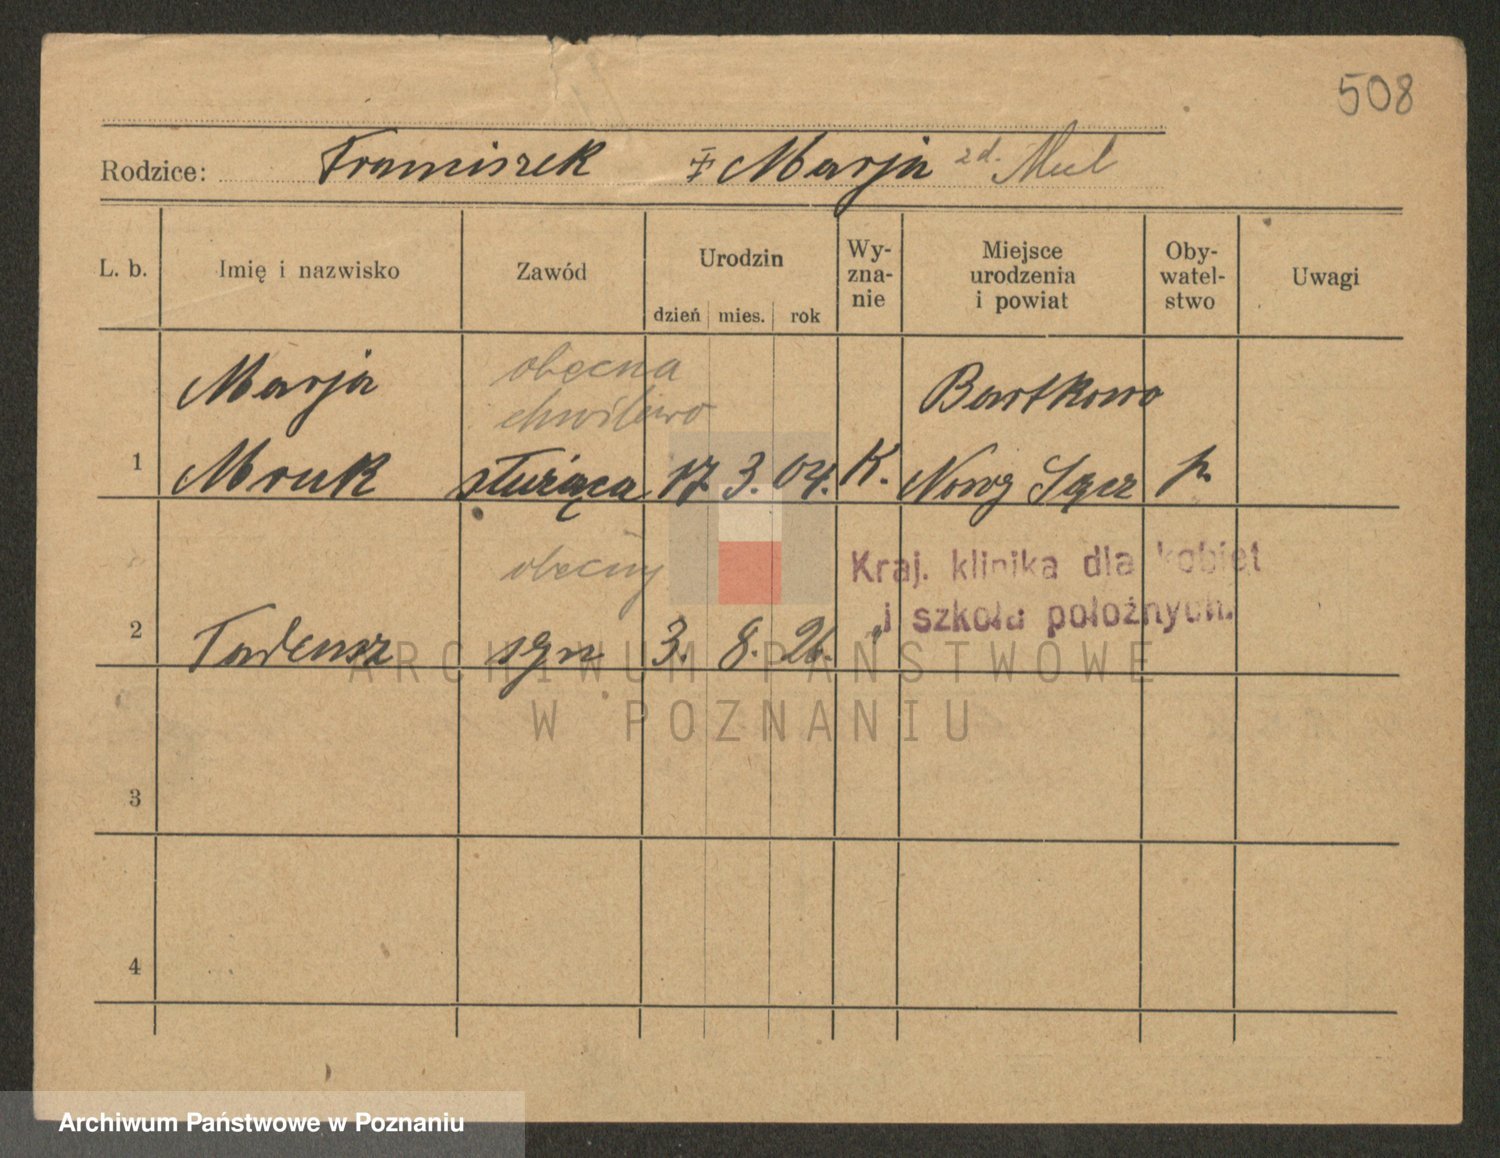 508
Rodzice: Franciszek Marja zd. Mul
L. b. Imię i nazwisko Zawód Urodzin dzień mies. rok Wy-zna-nie Miejsce urodzenia i powiat Oby-watel-stwo Uwagi
obecna
Marja chwilowo Bartkowo
1 Mruk służąca 17. 3. 04. K. Nowy Sącz p.
obecny Kraj. klinika dla kobiet
i szkoła położnych.
2 Tadeusz syn 3. 8. 26. "
ARCHIWUM PAŃSTWOWE
W POZNANIU
3
4
Archiwum Państwowe w Poznaniu